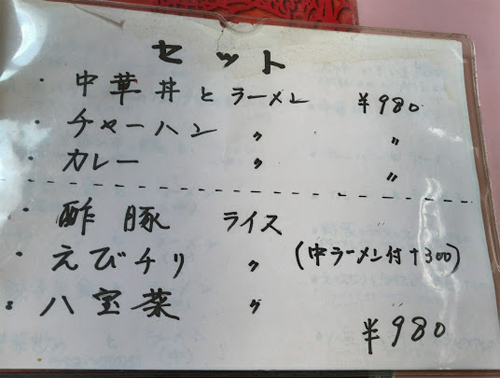 セット
・中華丼とラーメン ¥980
・チャーハン 〃 〃
・カレー 〃 〃
・酢豚 ライス
・えびチリ 〃 (中ラーメン付+300)
・八宝菜 〃
¥980